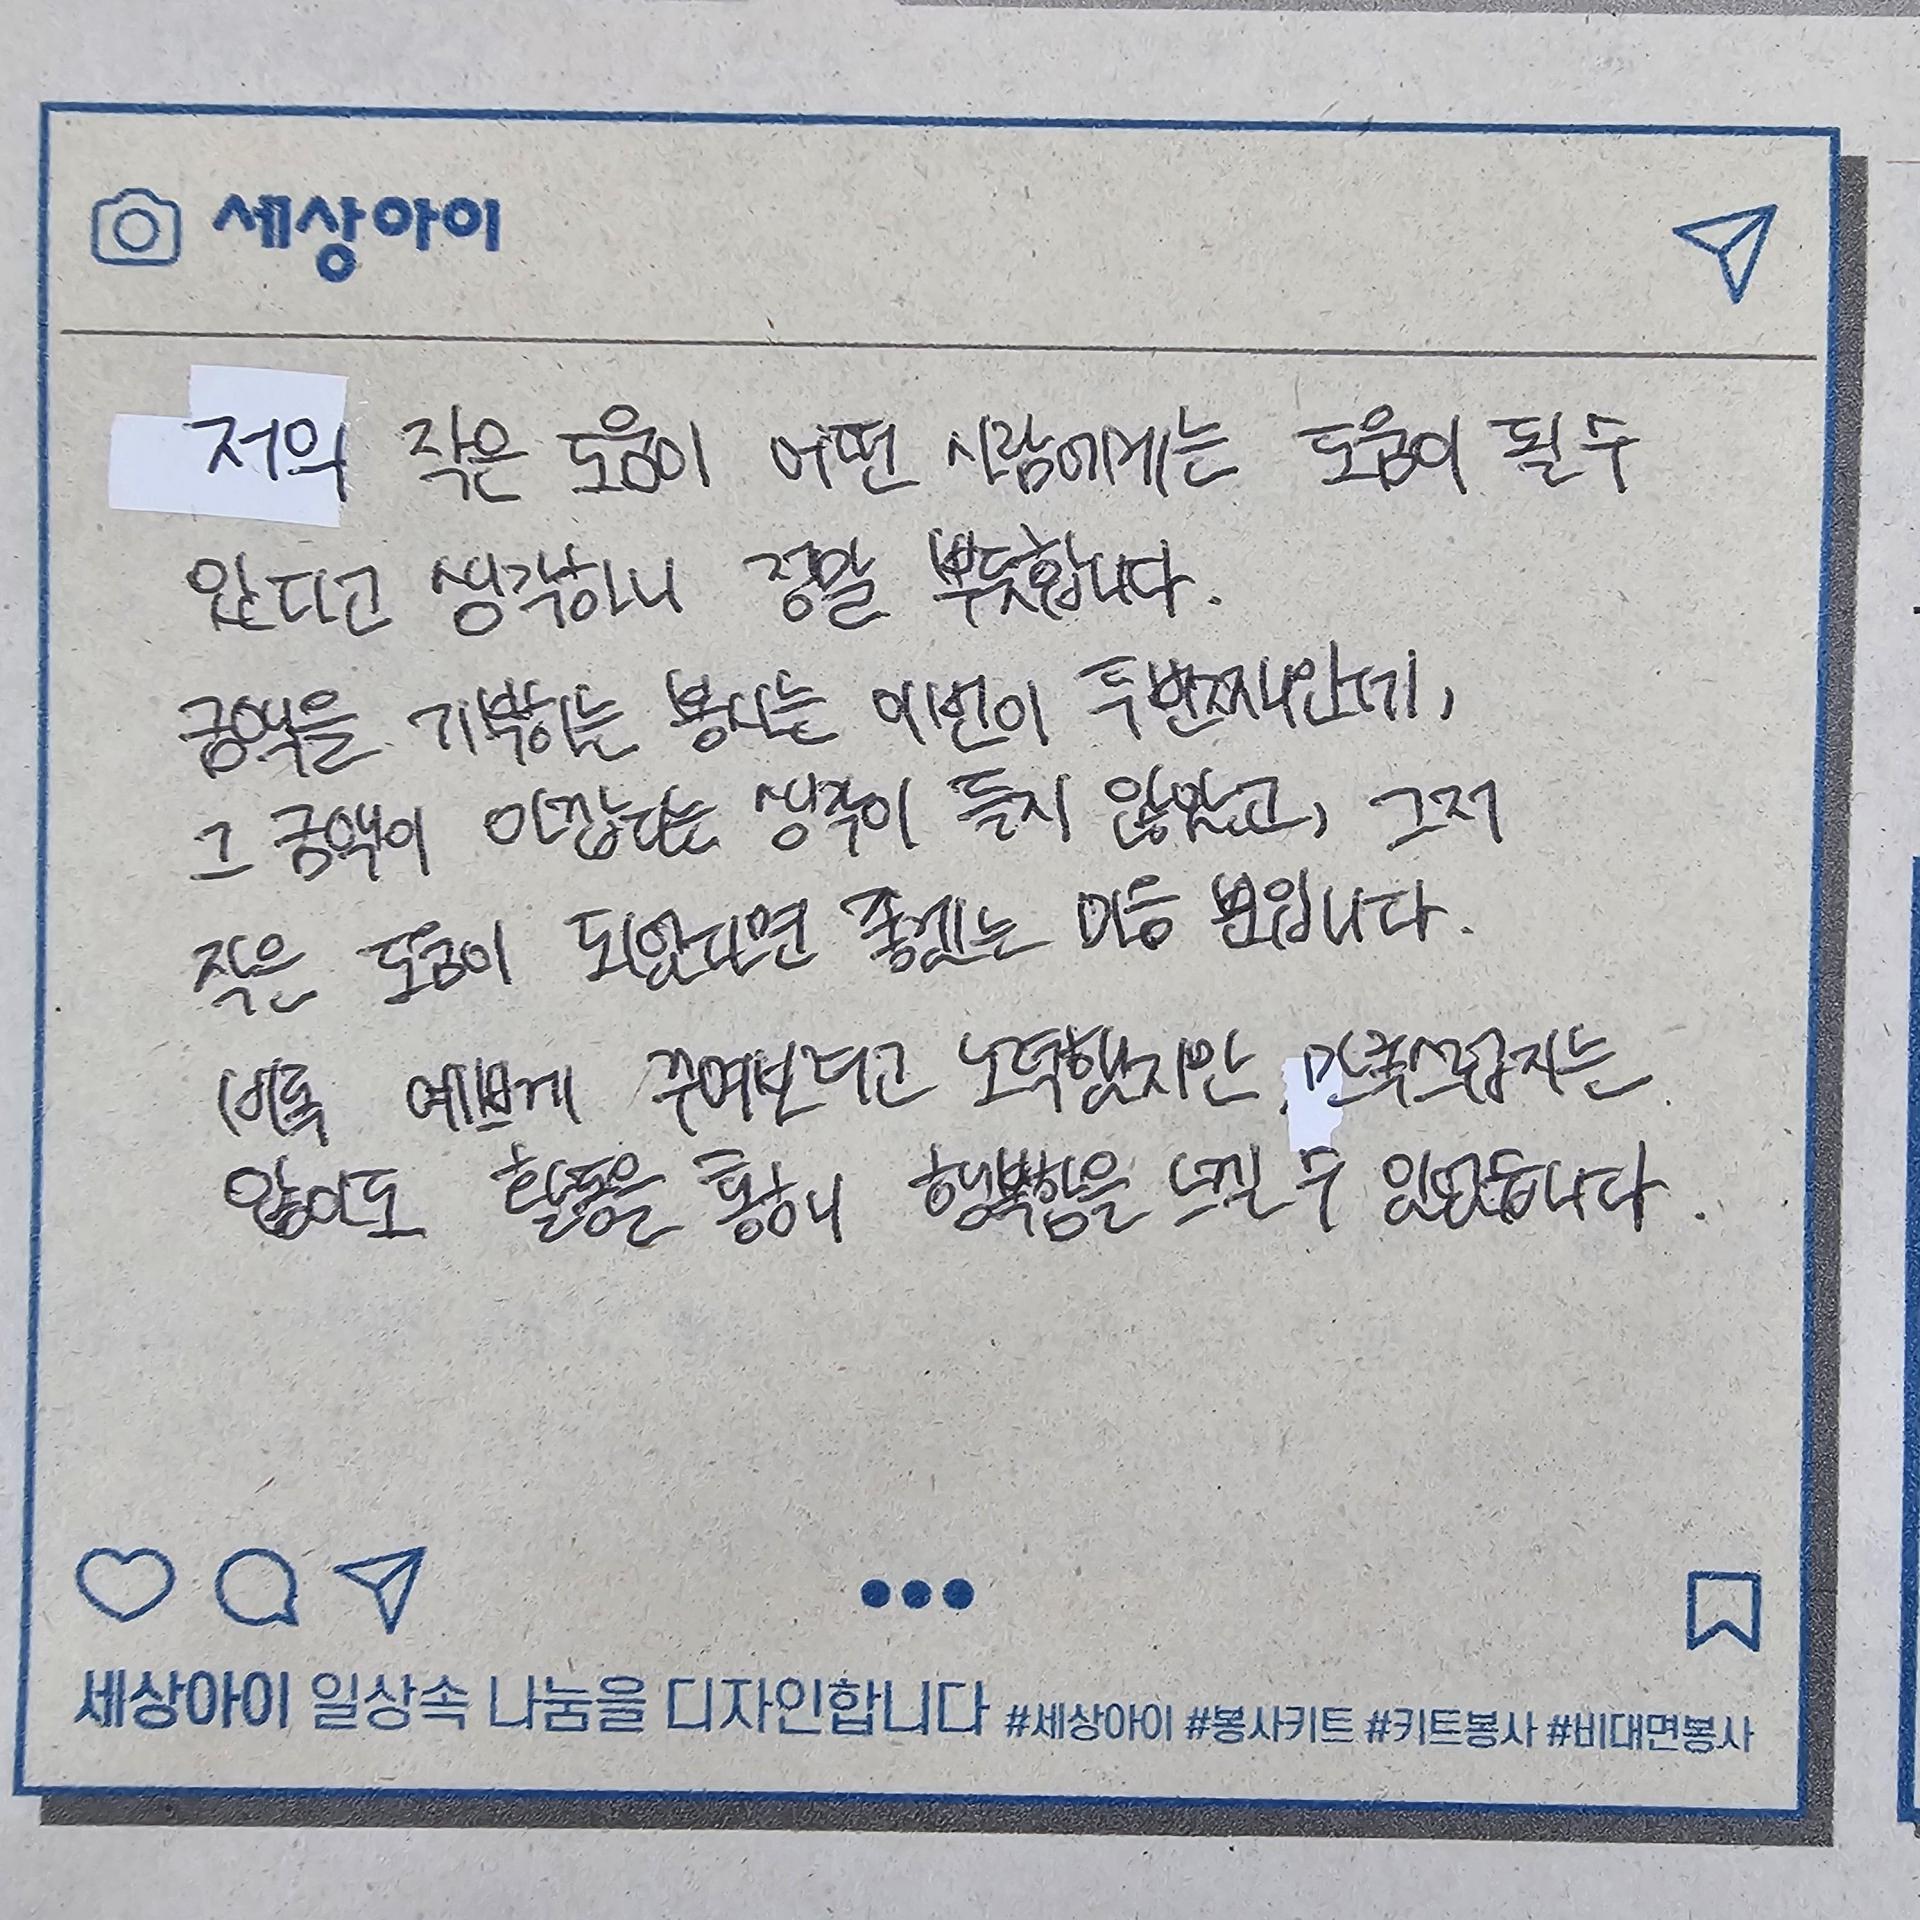 세상아이
저의 작은 도움이 어떤 사람에게는 도움이 될 수
있다고 생각하니 정말 뿌듯합니다.
금액을 기부하는 봉사는 이번이 두번째인데,
그 금액이 아깝다는 생각이 들지 않았고, 그저
작은 도움이 되었다면 좋겠는 마음 뿐입니다.
비록 예쁘게 꾸며본다고 노력했지만 만족스럽지는
않아도 활동을 통해 행복함을 느낄 수 있었습니다.
세상아이 일상속 나눔을 디자인합니다 #세상아이 #봉사키트 #키트봉사 #비대면봉사